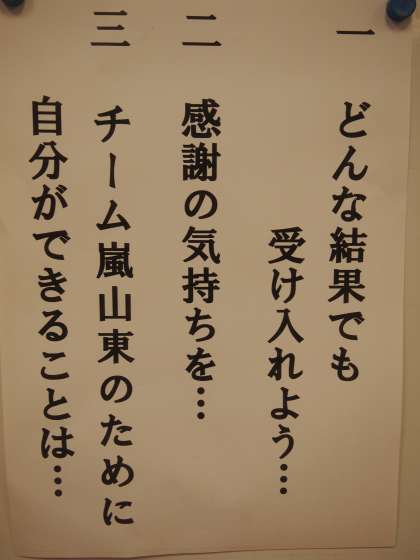 一 どんな結果でも
受け入れよう…
二 感謝の気持ちを…
三 チーム嵐山東のために
自分ができることは…